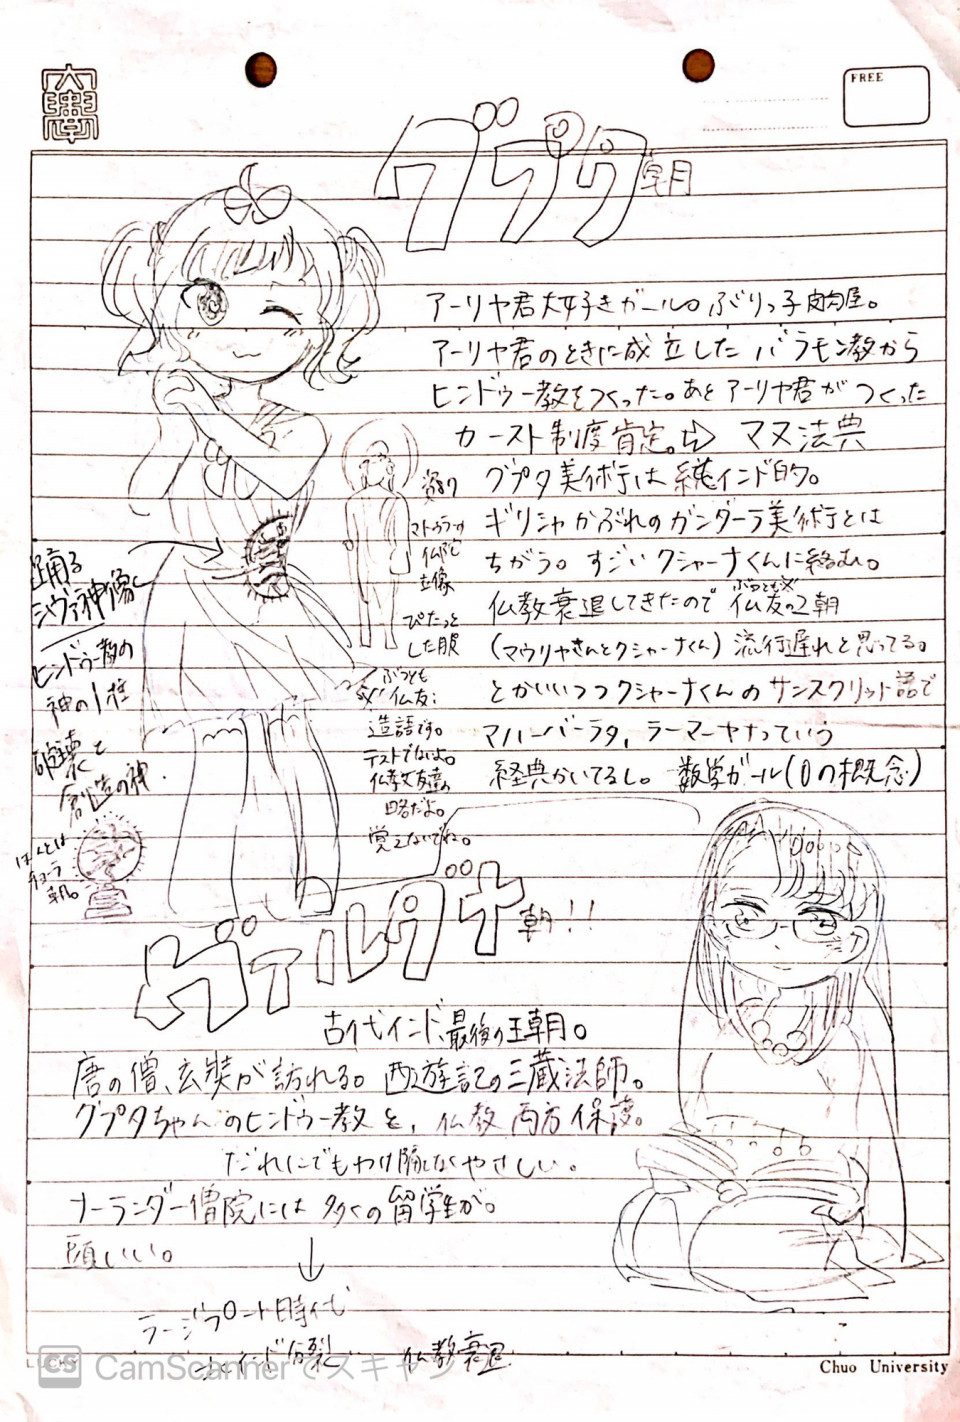 FREE
グプタ朝
アーリヤ君大好きガール。ぶりっ子肉屋。
アーリヤ君のときに成立したバラモン教から
ヒンドゥー教をつくった。あとアーリヤ君がつくった
カースト制度肯定。⇨ マヌ法典
グプタ美術は純インド的。
ギリシャかぶれのガンダーラ美術とは
ちがう。すごいクシャーナくんに絡む。
仏教衰退してきたので仏友の2朝
ぶつとも
(マウリヤさんとクシャーナくん)流行遅れと思ってる。
とかいいつつクシャーナくんのサンスクリット語で
マハーバーラタ，ラーマーヤナっていう
経典かいてるし。数学ガール(0の概念)
マトゥラーの
仏陀
立像
ぴたっと
した服
踊る
シヴァ神像
ヒンドゥー教の
神の1柱
破壊と
創造の神.
ほんとは
チョーラ
朝。
ぶつとも
※仏友:
造語です。
テストでないよ。
仏教友達の
略だよ。
覚えないでね。
ヴァルダナ朝!!
古代インド最後の王朝。
唐の僧、玄奘が訪れる。西遊記の三蔵法師。
グプタちゃんのヒンドゥー教と，仏教両方保護。
だれにでもわけ隔てなくやさしい。
ナーランダー僧院には多くの留学生が。
頭いい。
↓
ラージプート時代
インド分裂 仏教衰退
CS CamScannerでスキャン
Chuo University